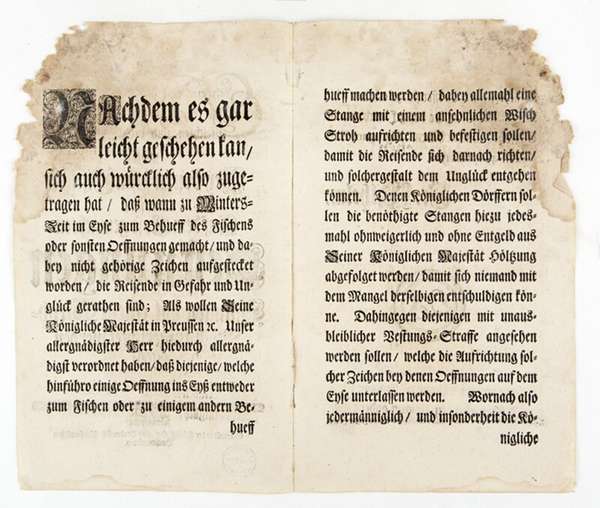 NAchdem es gar
leicht geschehen kan/
sich auch würcklich also zuge-
tragen hat / daß wann zu Winters-
Zeit im Eyse zum Behueff des Fischens
oder sonsten Oeffnungen gemacht/ und da-
bey nicht gehörige Zeichen aufgestecket
worden/ die Reisende in Gefahr und Un-
glück gerathen sind; Als wollen Seine
Königliche Majestät in Preussen ꝛc. Unser
allergnädigster Herr hiedurch allergnä-
digst verordnet haben/ daß diejenige/ welche
hinführo einige Oeffnung ins Eyß entweder
zum Fischen oder zu einigem andern Be-
hueff
hueff machen werden/ dabey allemahl eine
Stange mit einem ansehnlichen Wisch
Stroh aufrichten und befestigen sollen/
damit die Reisende sich darnach richten/
und solchergestalt dem Unglück entgehen
können. Denen Königlichen Dörffern sol-
len die benöthigte Stangen hiezu jedes-
mahl ohnweigerlich und ohne Entgeld aus
Seiner Königlichen Majestät Höltzung
abgefolget werden/ damit sich niemand mit
dem Mangel derselbigen entschuldigen kön-
ne. Dahingegen diejenigen mit unaus-
bleiblicher Vestungs-Straffe angesehen
werden sollen/ welche die Aufrichtung sol-
cher Zeichen bey denen Oeffnungen auf dem
Eyse unterlassen werden. Wornach also
jedermänniglich/ und insonderheit die Kö-
nigliche